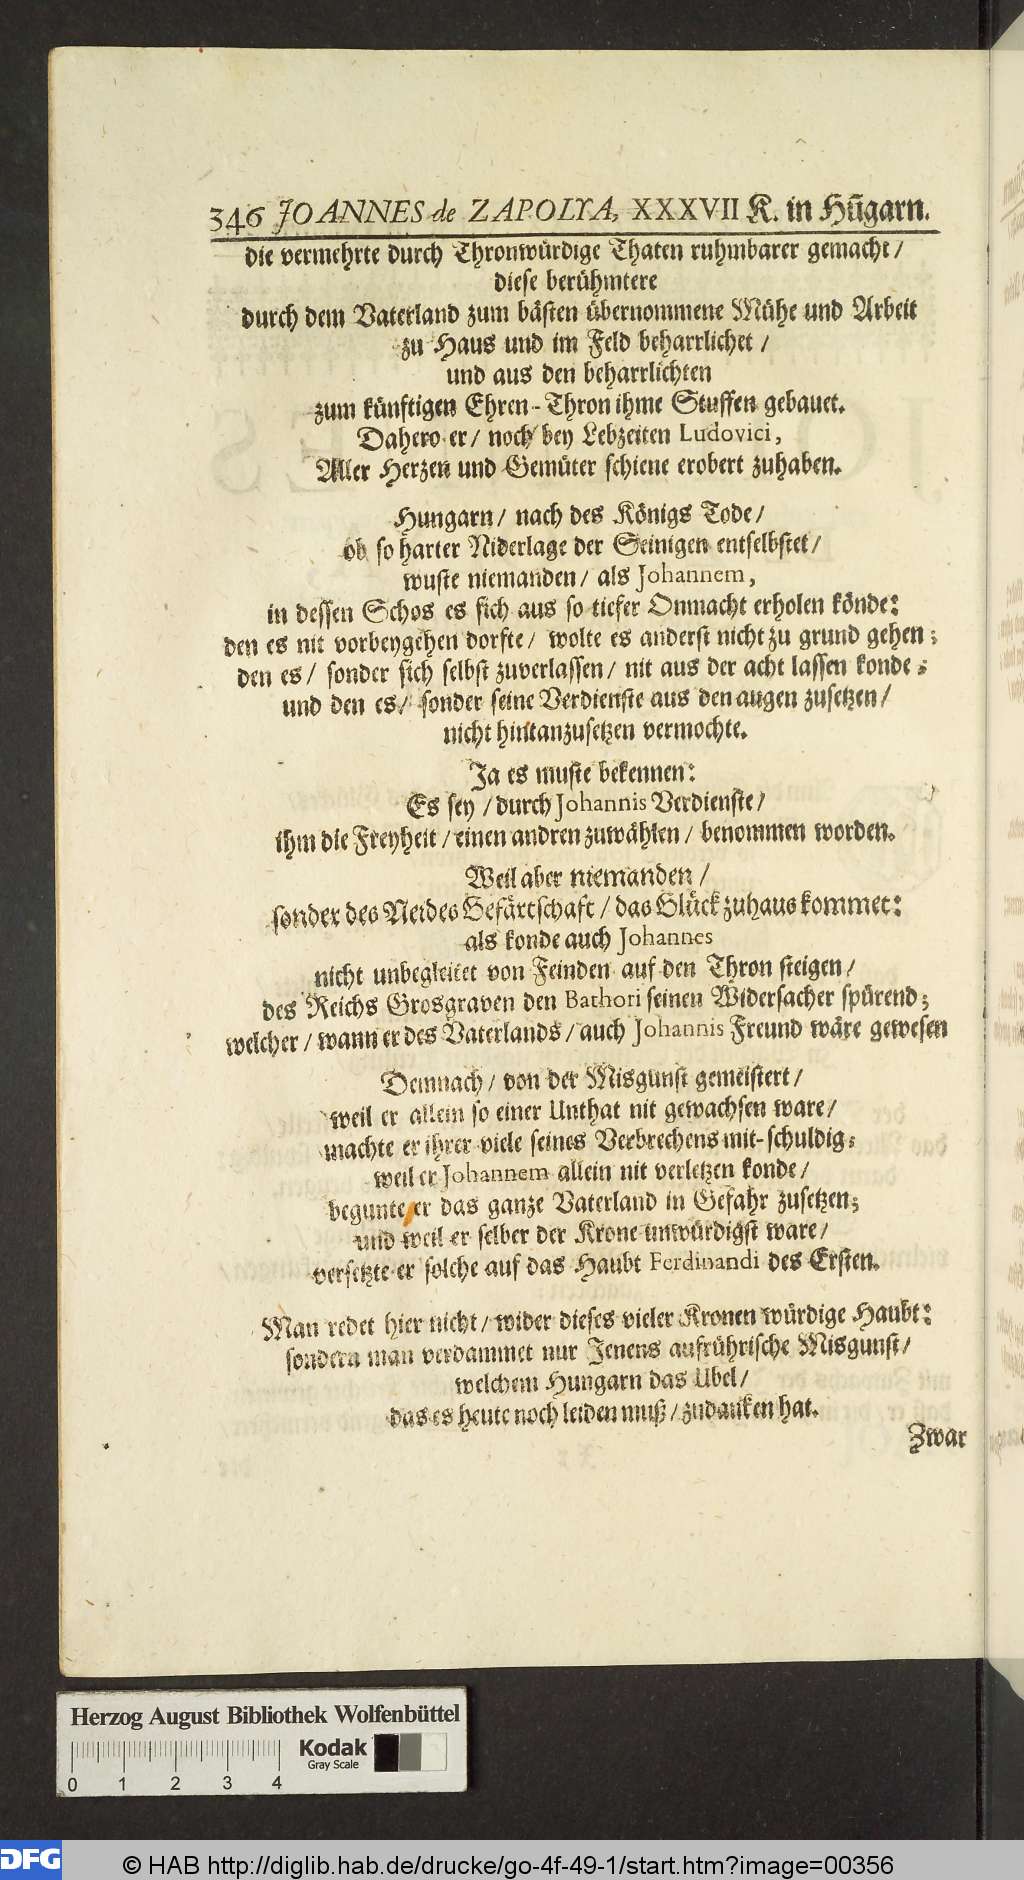 346 JOANNES de ZAPOLYA, XXXVII K. in Hūgarn.
die vermehrte durch Thronwürdige Thaten ruhmbarer gemacht /
diese berühmtere
durch dem Vaterland zum bästen übernommene Mühe und Arbeit
zu Haus und im Feld beharrlichet /
und aus den beharrlichten
zum künftigen Ehren-Thron ihme Stuffen gebauet.
Dahero er / noch bey Lebzeiten Ludovici,
Aller Herzen und Gemüter schiene erobert zuhaben.
Hungarn / nach des Königs Tode /
ob so harter Niderlage der Seinigen entselbstet /
wuste niemanden / als Johannem,
in dessen Schos es sich aus so tiefer Onmacht erholen könde:
den es nit vorbeygehen dorfte / wolte es anderst nicht zu grund gehen;
den es / sonder sich selbst zuverlassen / nit aus der acht lassen konde;
und den es / sonder seine Verdienste aus den augen zusetzen /
nicht hintanzusetzen vermochte.
Ja es muste bekennen:
Es sey / durch Johannis Verdienste /
ihm die Freyheit / einen andren zuwählen / benommen worden.
Weil aber niemanden /
sonder des Neides Gefärtschaft / das Glück zuhaus kommet:
als konde auch Johannes
nicht unbegleitet von Feinden auf den Thron steigen /
des Reichs Grosgraven den Bathori seinen Widersacher spürend;
welcher / wann er des Vaterlands / auch Johannis Freund wäre gewesen
Demnach / von der Misgunst gemeistert /
weil er allein so einer Unthat nit gewachsen ware /
machte er ihrer viele seines Verbrechens mit-schuldig;
weil er Johannem allein nit verletzen konde /
begunte er das ganze Vaterland in Gefahr zusetzen;
und weil er selber der Krone unwürdigst ware /
versetzte er solche auf das Haubt Ferdinandi des Ersten.
Man redet hier nicht / wider dieses vieler Kronen würdige Haubt:
sondern man verdammet nur Jenens aufrührische Misgunst /
welchem Hungarn das Ubel /
das es heute noch leiden muß / zudanken hat.
Zwar
Herzog August Bibliothek Wolfenbüttel
Kodak
Gray Scale
0 1 2 3 4
DFG
© HAB http://diglib.hab.de/drucke/go-4f-49-1/start.htm?image=00356